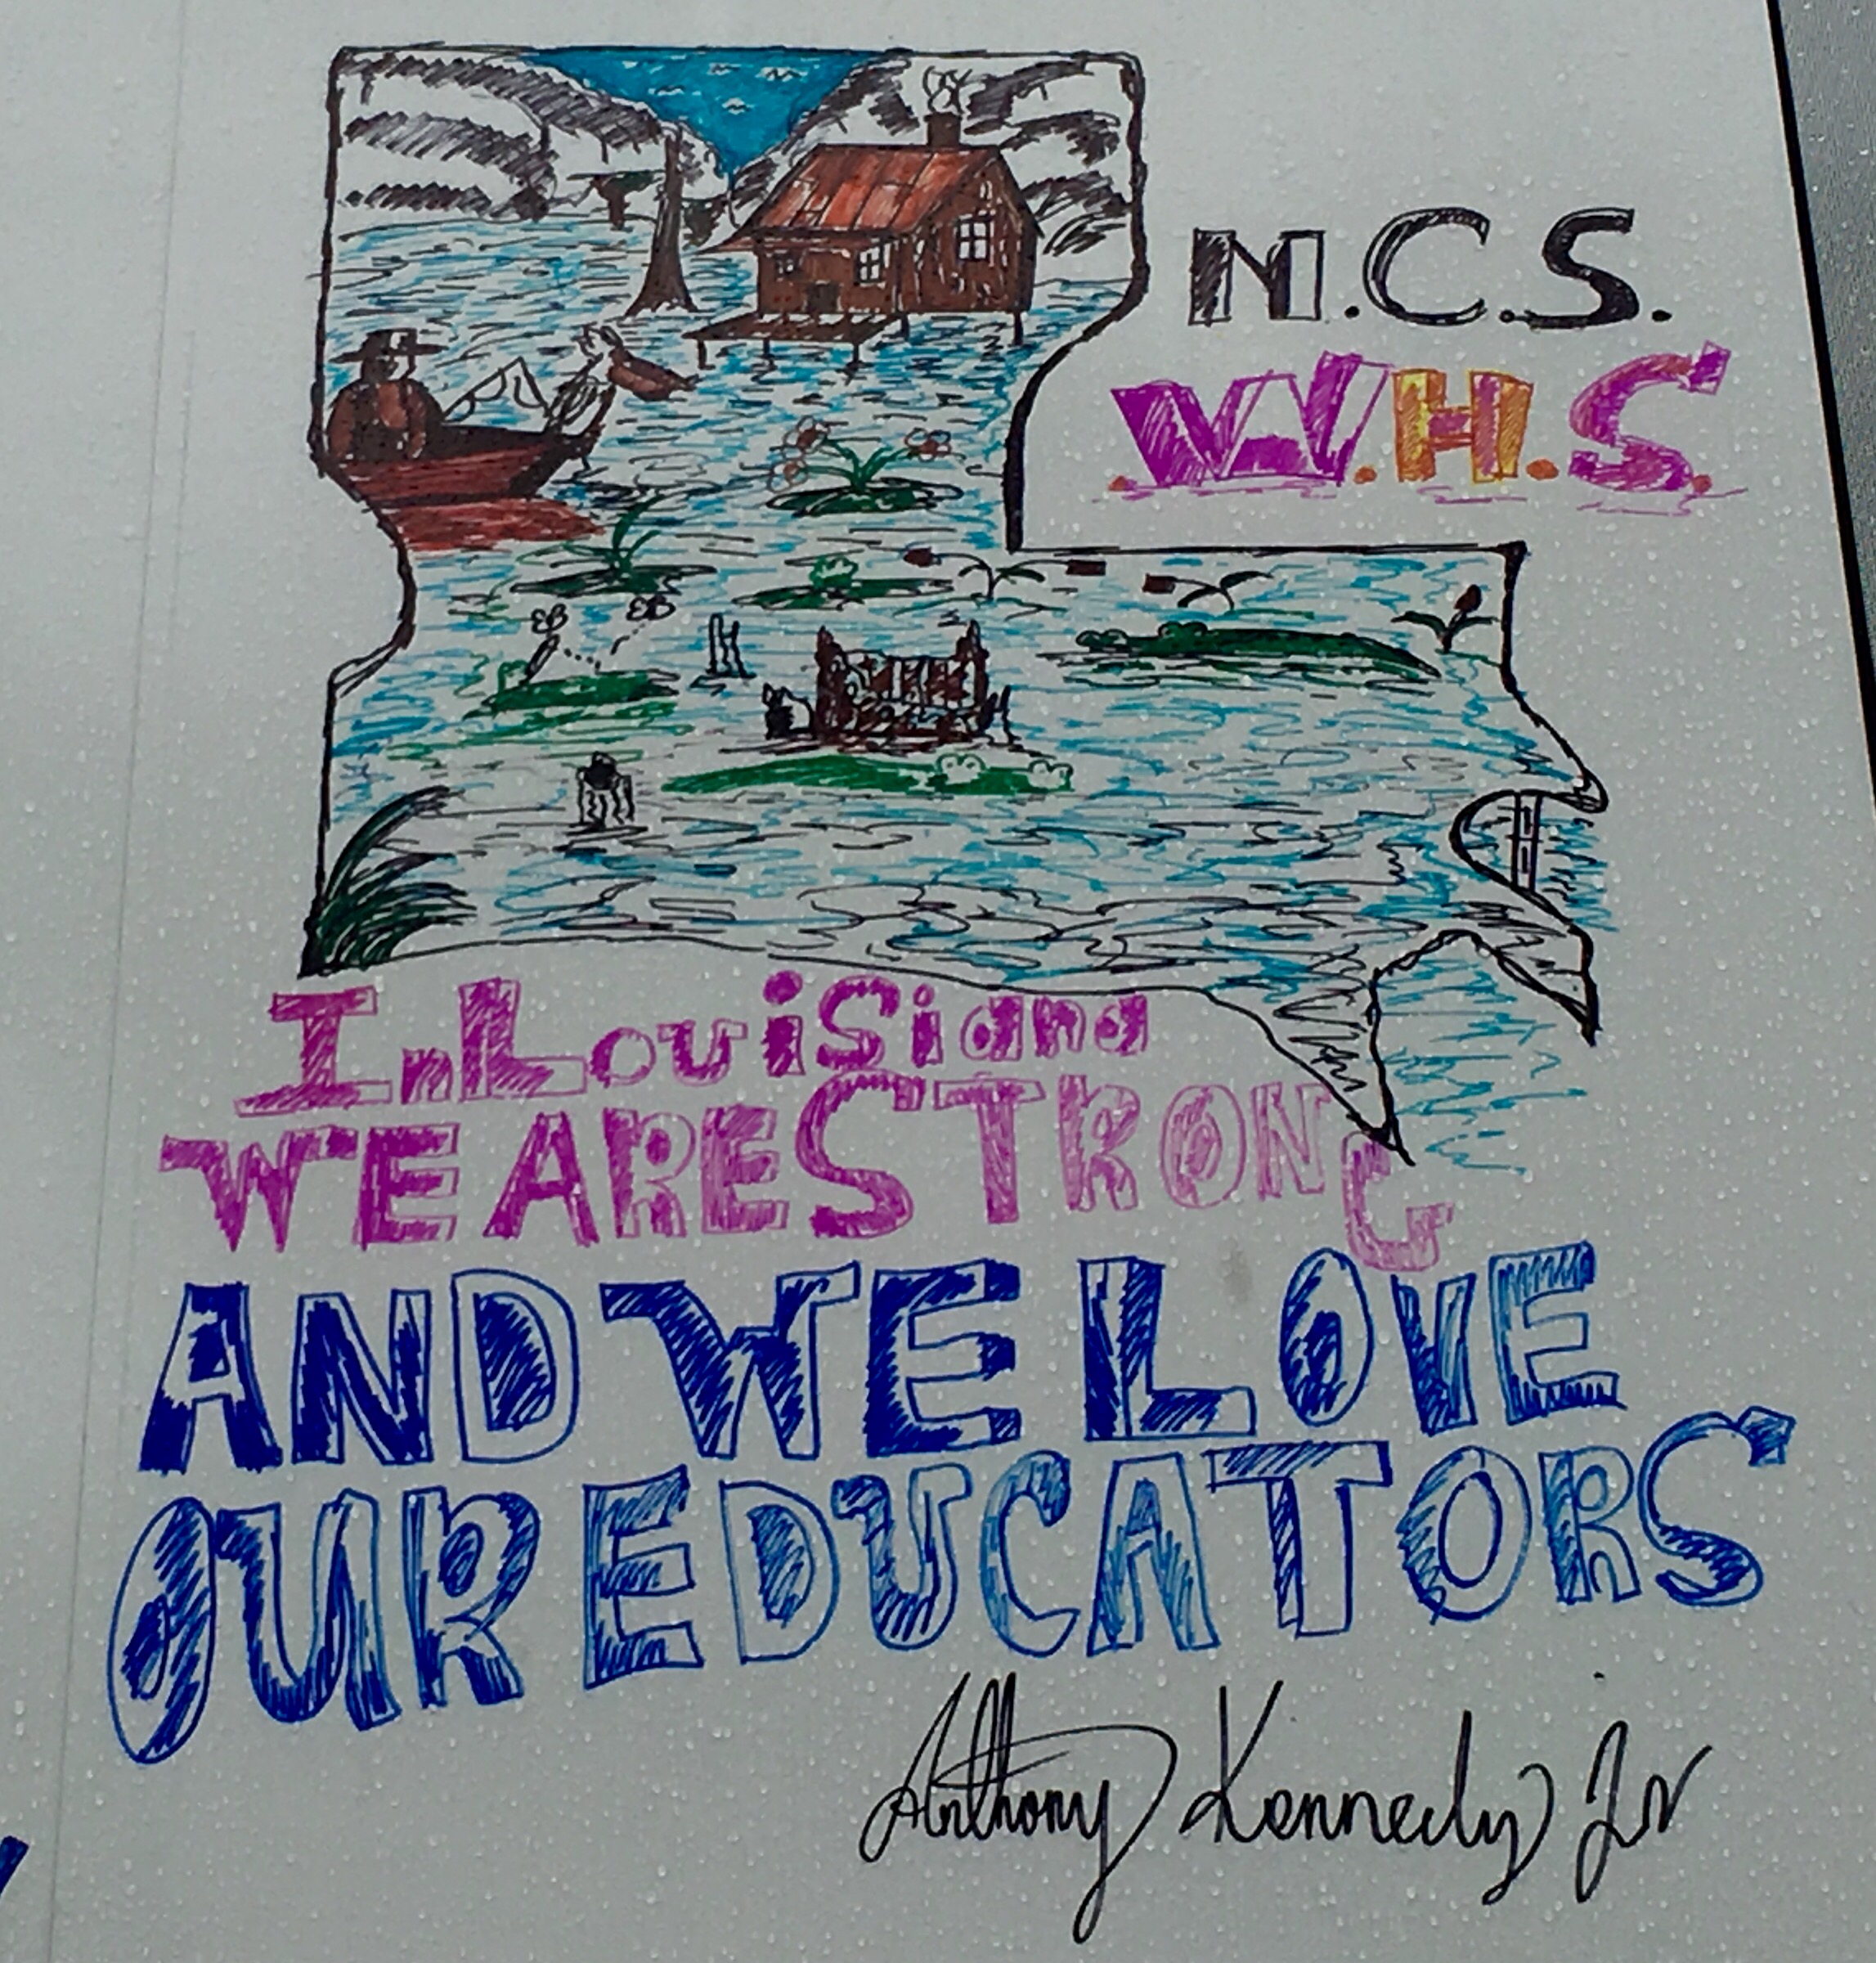 N.C.S.
.W.H.S.
In Louisiana
WE ARE STRONG
AND WE LOVE
OUR EDUCATORS
Anthony Kennedy Jr